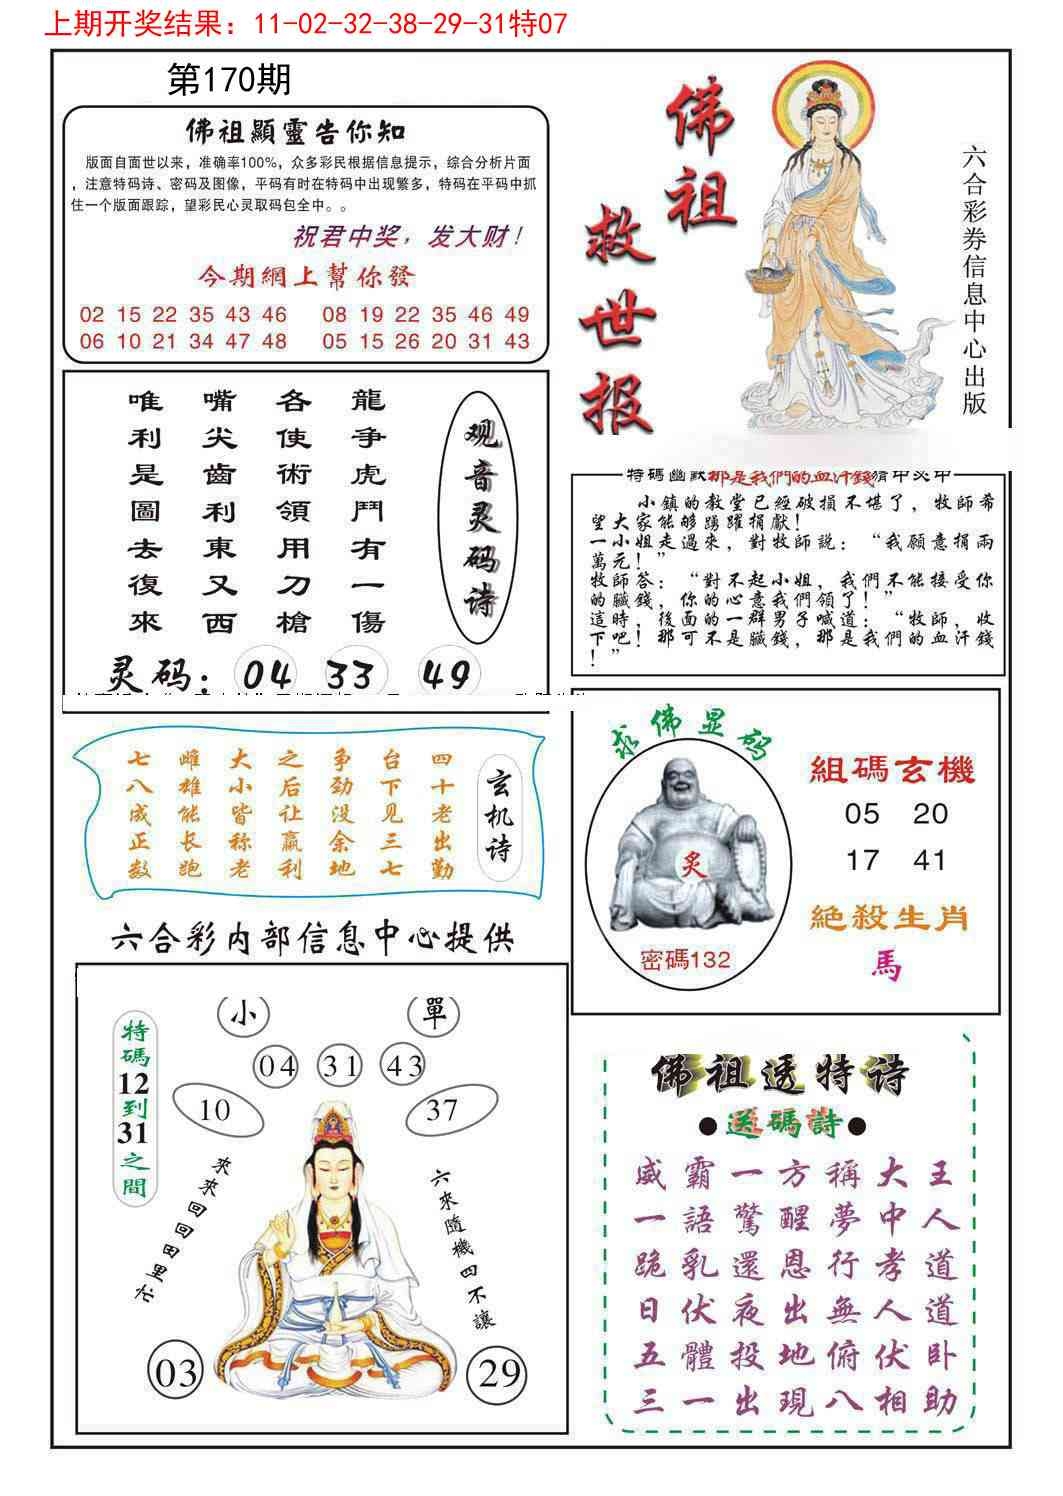 上期开奖结果：11-02-32-38-29-31特07
第170期
佛祖顯靈告你知
版面自面世以来，准确率100%，众多彩民根据信息提示，综合分析片面
，注意特码诗、密码及图像，平码有时在特码中出现繁多，特码在平码中抓
住一个版面跟踪，望彩民心灵取码包全中。。
祝君中奖，发大财！
今期網上幫你發
02 15 22 35 43 46 08 19 22 35 46 49
06 10 21 34 47 48 05 15 26 20 31 43
佛祖
救世报
六合彩券信息中心出版
观音灵码诗
龍争虎鬥有一傷
各使術領用刀槍
嘴尖齒利東又西
唯利是圖去復來
灵码：04 33 49
特碼幽默那是我們的血汗錢猜中爻中
小鎮的教堂已經破損不堪了，牧師希
望大家能够踴躍捐獻！
一小姐走過來，對牧師説：“我願意捐兩
萬元！”
牧師答：“對不起小姐，我們不能接受你
的臟錢，你的心意我們領了！”
這時，後面的一群男子喊道：“牧師，收
下吧！那可不是臟錢，那是我們的血汗錢
！”
玄机诗
四十老出勤
台下见三七
争劲没余地
之后让赢利
大小皆称老
雌雄能长跑
七八成正数
求佛显码
炙
密碼132
組碼玄機
05 20
17 41
絕殺生肖
馬
六合彩内部信息中心提供
特碼12到31之間
小 單
04 31 43
10 37
來來回回田里忙
六來隨機四不讓
03 29
佛祖透特诗
●送碼詩●
威霸一方稱大王
一語驚醒夢中人
跪乳還恩行孝道
日伏夜出無人道
五體投地俯伏卧
三一出現八相助